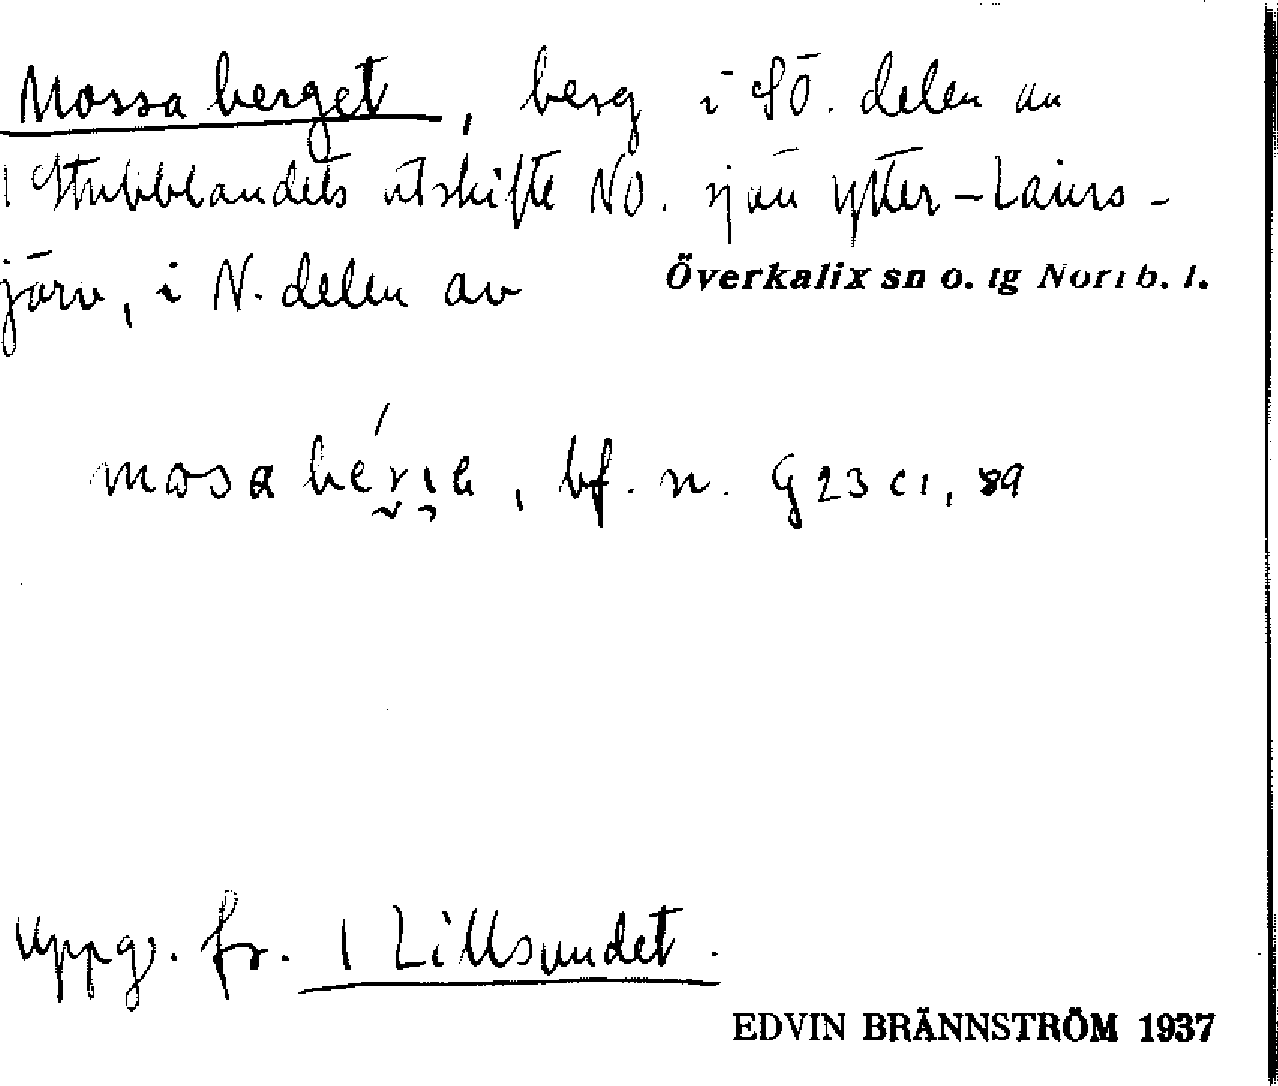 Mossaberget, berg i SÖ. delen av
1 Stubblandets utskifte NO. sjön Ytter-Lairs-
järv, i N. delen av Överkalix sn o. tg Norrb. l.
bf. n. G 23 c1, 89
Uppg. fr. 1 Lillsundet.
EDVIN BRÄNNSTRÖM 1937